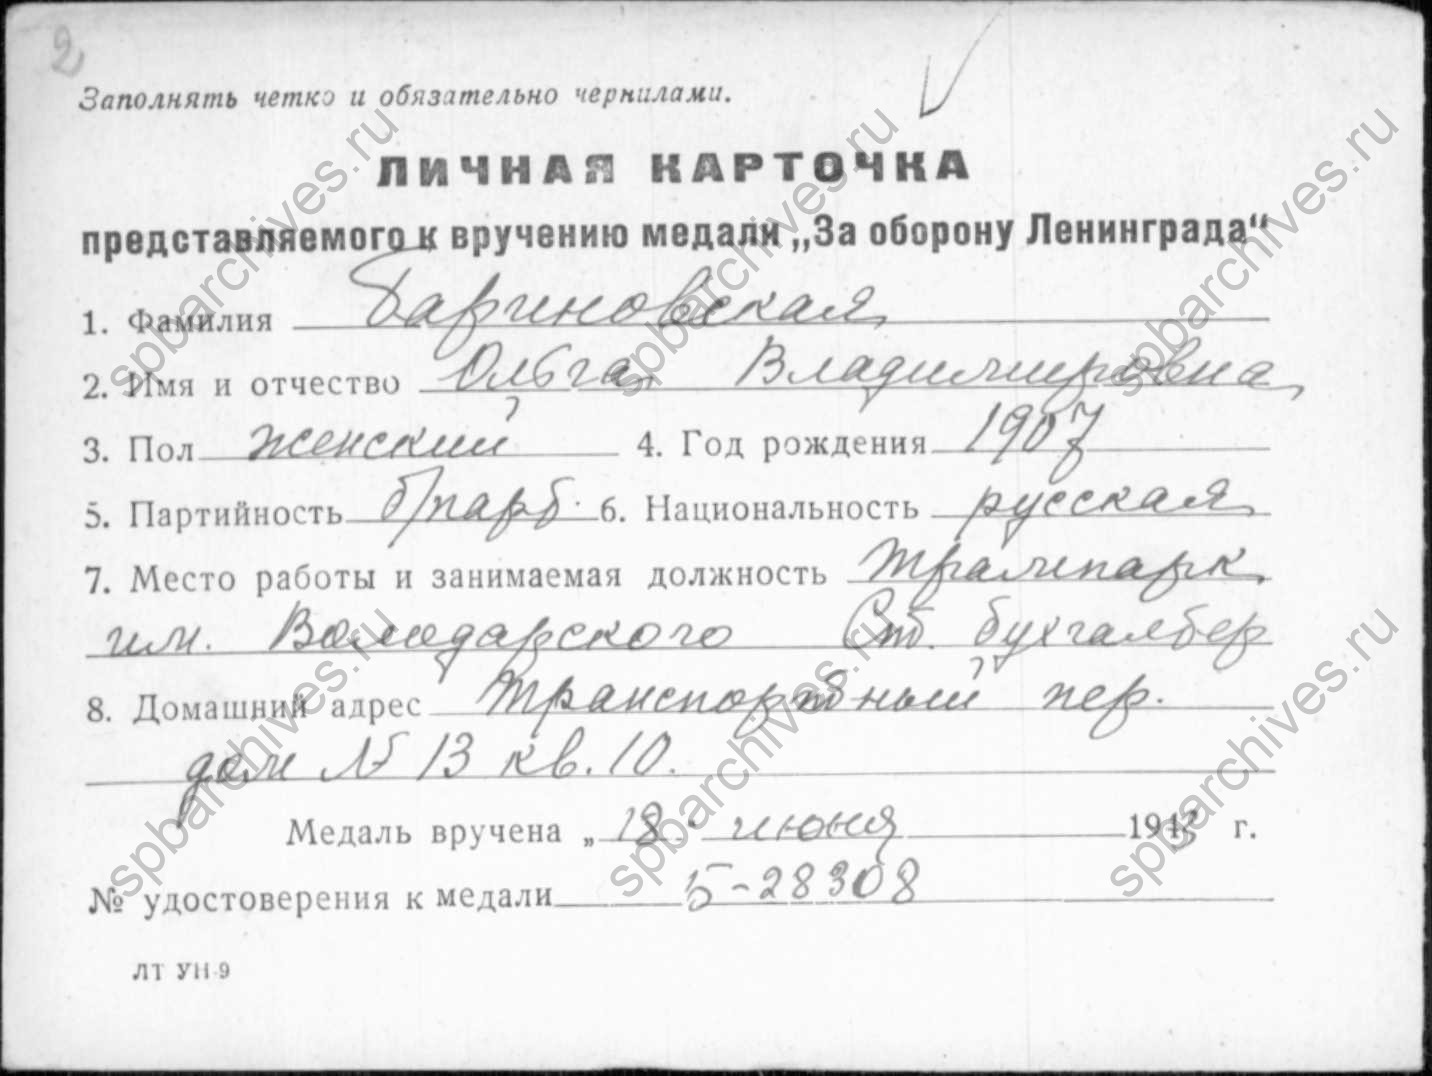 2
Заполнять четко и обязательно чернилами.
ЛИЧНАЯ КАРТОЧКА
представляемого к вручению медали „За оборону Ленинграда“
1. Фамилия Бариновская
2. Имя и отчество Ольга Владимировна
3. Пол женский 4. Год рождения 1907
5. Партийность б/парт. 6. Национальность русская
7. Место работы и занимаемая должность Трампарк
им. Володарского Ст. бухгалтер
8. Домашний адрес Транспортный пер.
дом № 13 кв. 10.
Медаль вручена „18. июня 1943 г.
№ удостоверения к медали Б-28308
ЛТ УН-9
spbarchives.ru
spbarchives.ru
spbarchives.ru
spbarchives.ru
spbarchives.ru
spbarchives.ru